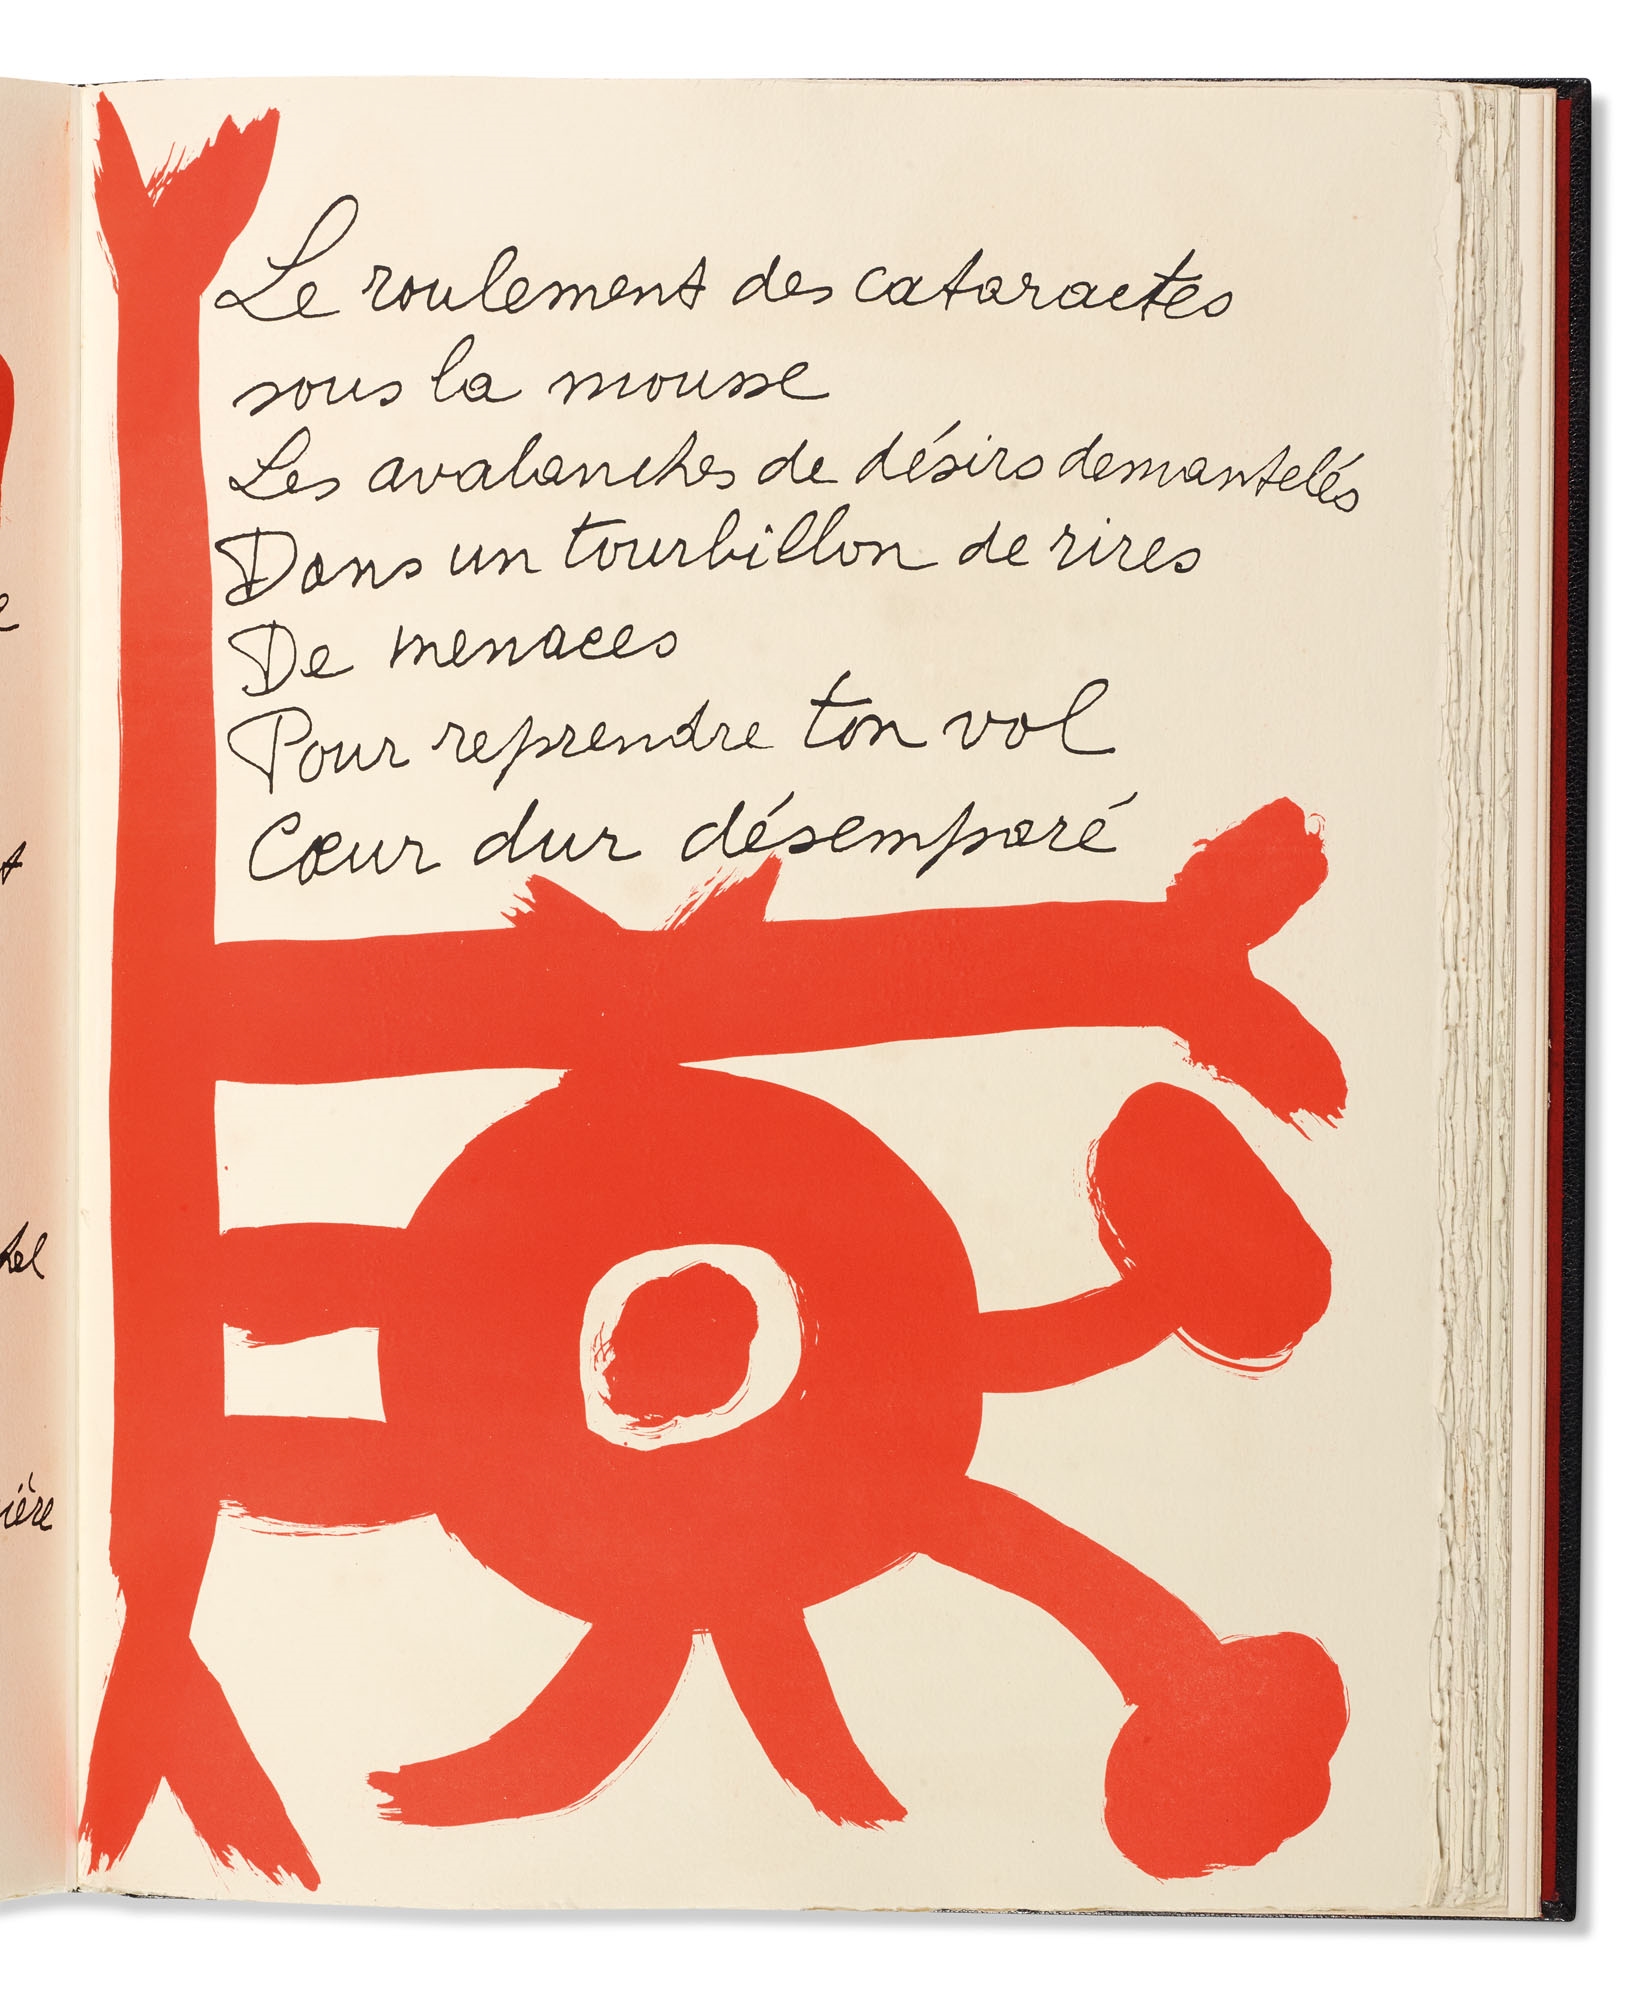 Le roulement des cataractes
sous la mousse
Les avalanches de désirs demantelés
Dans un tourbillon de rires
De menaces
Pour reprendre ton vol
Cœur dur désemparé